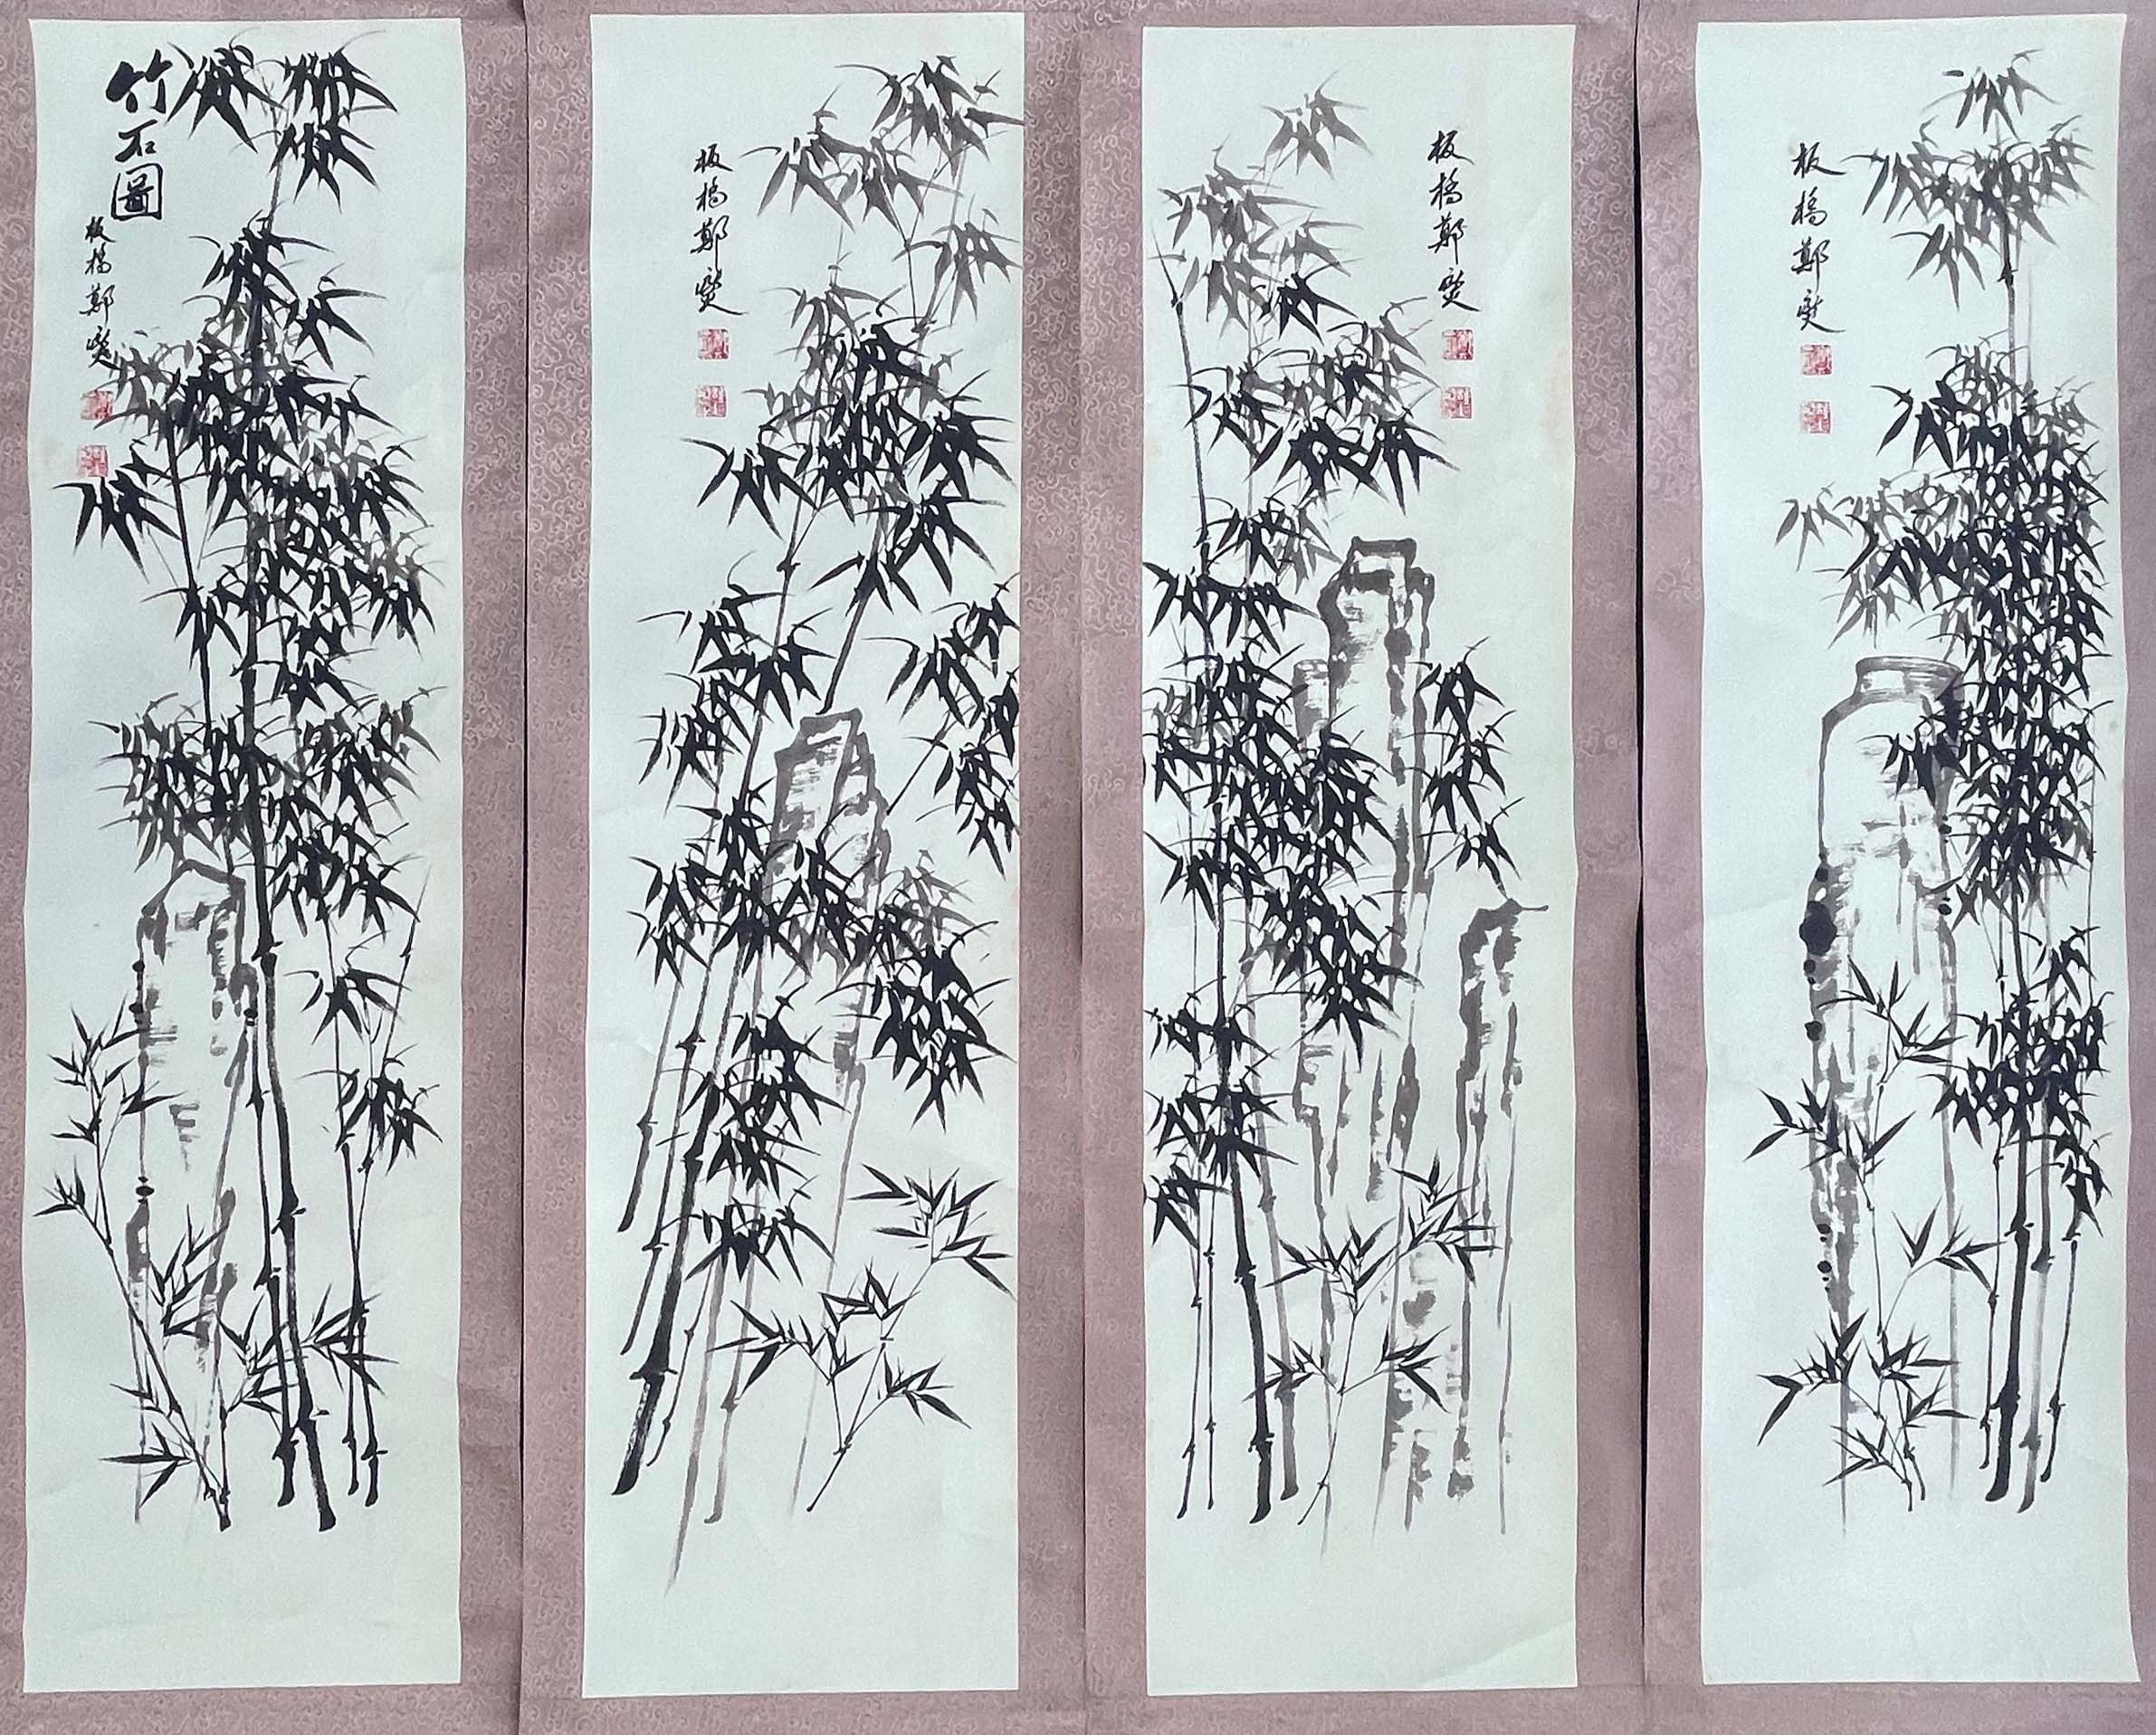 竹石圖
板橋鄭燮
板橋鄭燮
板橋鄭燮
板橋鄭燮